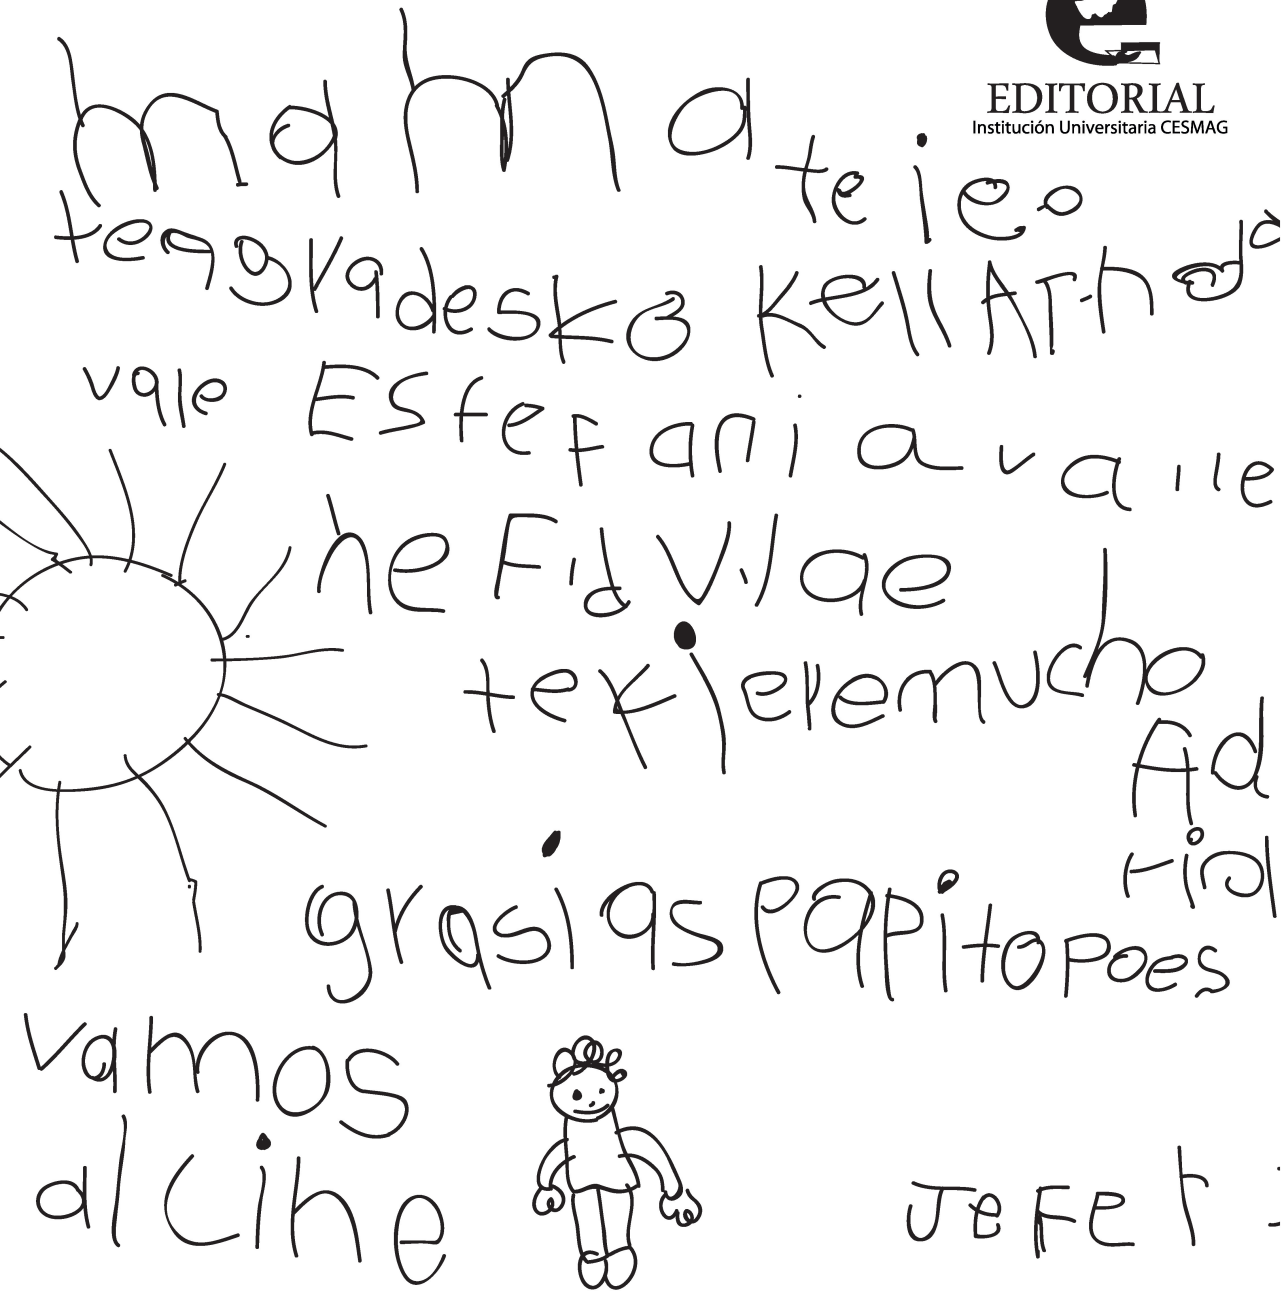 EDITORIAL
Institución Universitaria CESMAG
mama
te
teagradesko
vale Estefania valle
ne Fid
tekieremucho
Ad
grasiaspapitopoes
vamos
alcine
JeFet